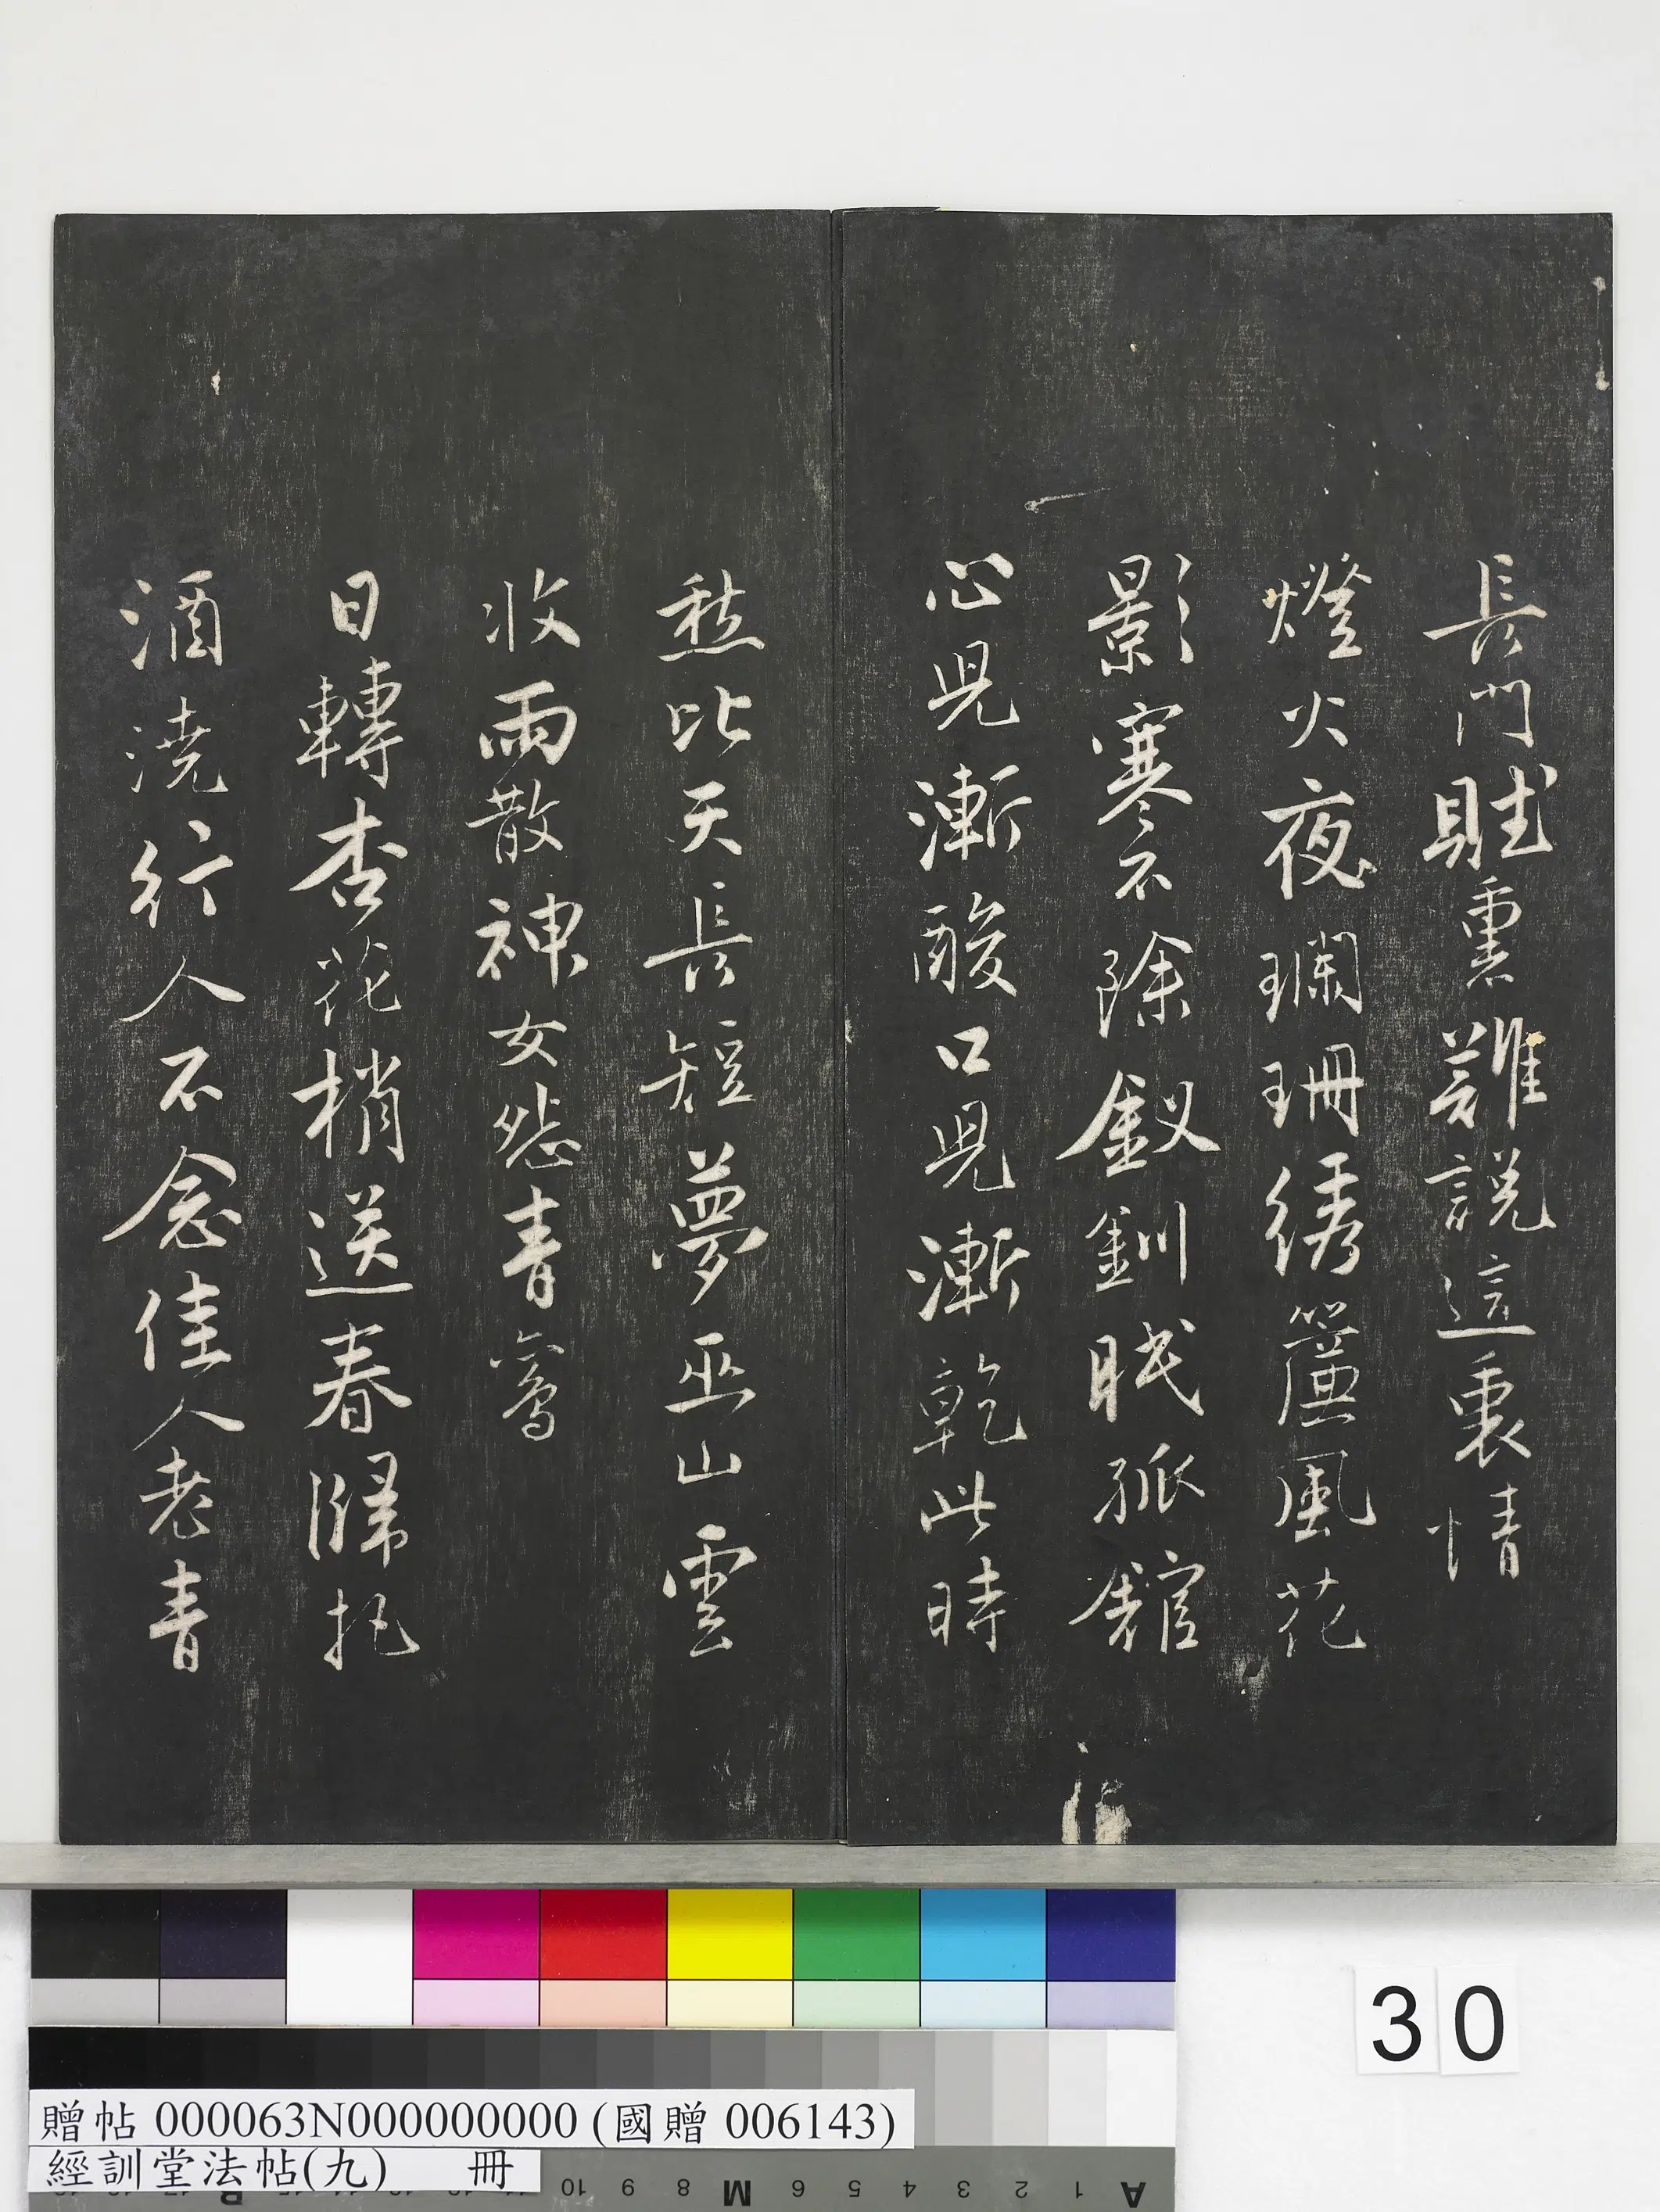 長門賦熏難說這裏情
燈火夜瓓珊綉簾風花
影寒不除釵釧眠孤舘
心児漸酸口児漸乾此時
愁比天長短夢巫山雲
收雨散神女怨青鸞
日轉杏花梢送春歸把
酒澆行人不念佳人老青
30
贈帖 000063N000000000 (國贈 006143)
經訓堂法帖(九) 冊
10 9 8 M 6 5 4 3 2 1 A